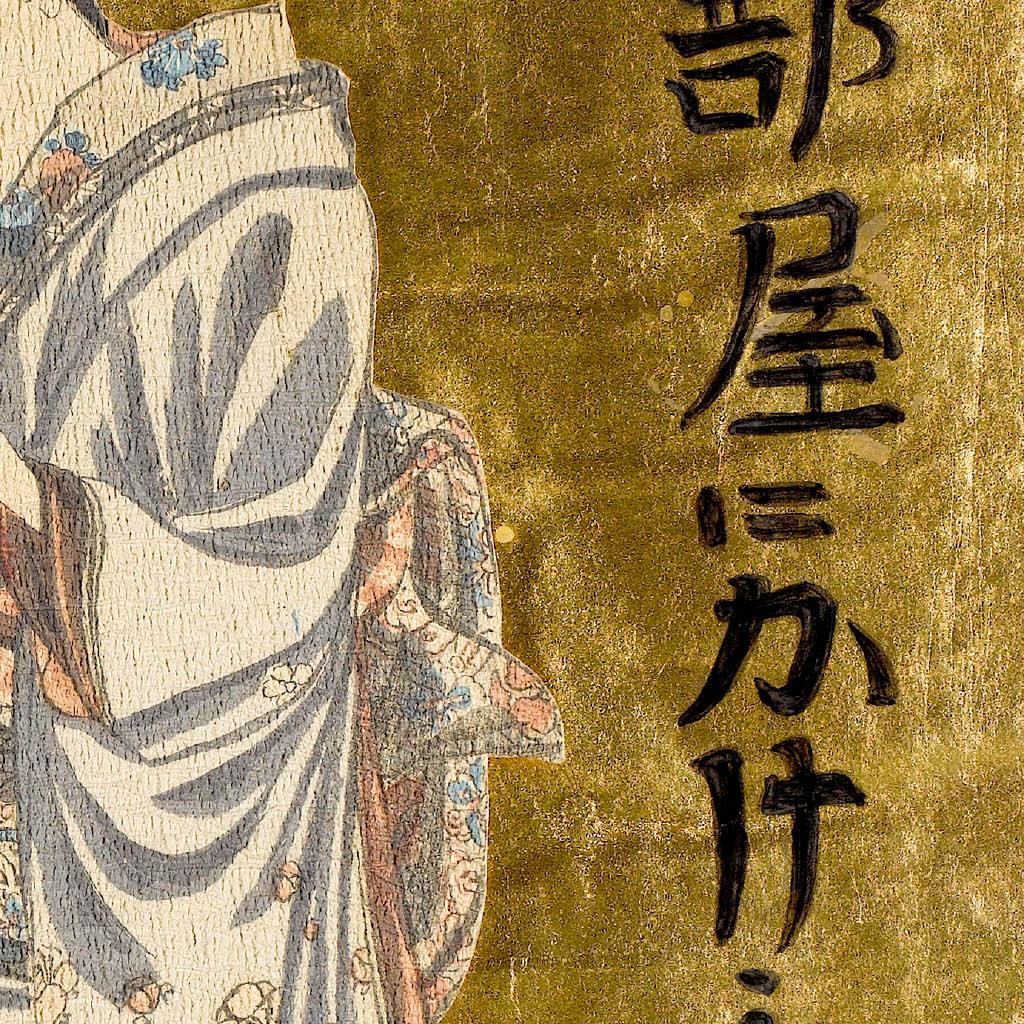 部屋にかけ